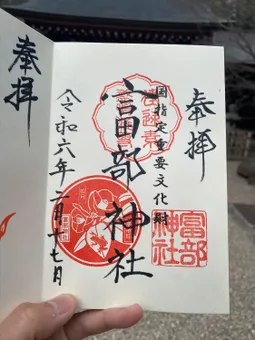 奉拝
国指定重要文化財
富部神社
令和六年二月十七日
富部
神社
奉拝